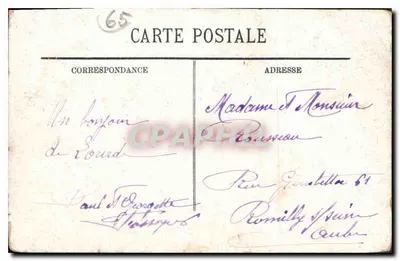 65
CARTE POSTALE
CORRESPONDANCE
ADRESSE
Un bonjour
de Lourd
Paul et Georgette
Madame et Monsieur
Rousseau
Rue 61
Romilly s/seine
Aube
CPARAMA